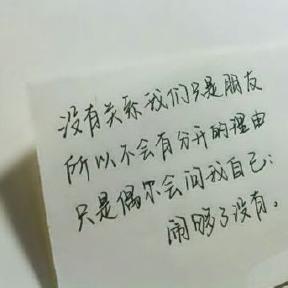 没有关系我们只是朋友
所以不会有分开的理由
只是偶尔会问我自己:
闹够了没有。